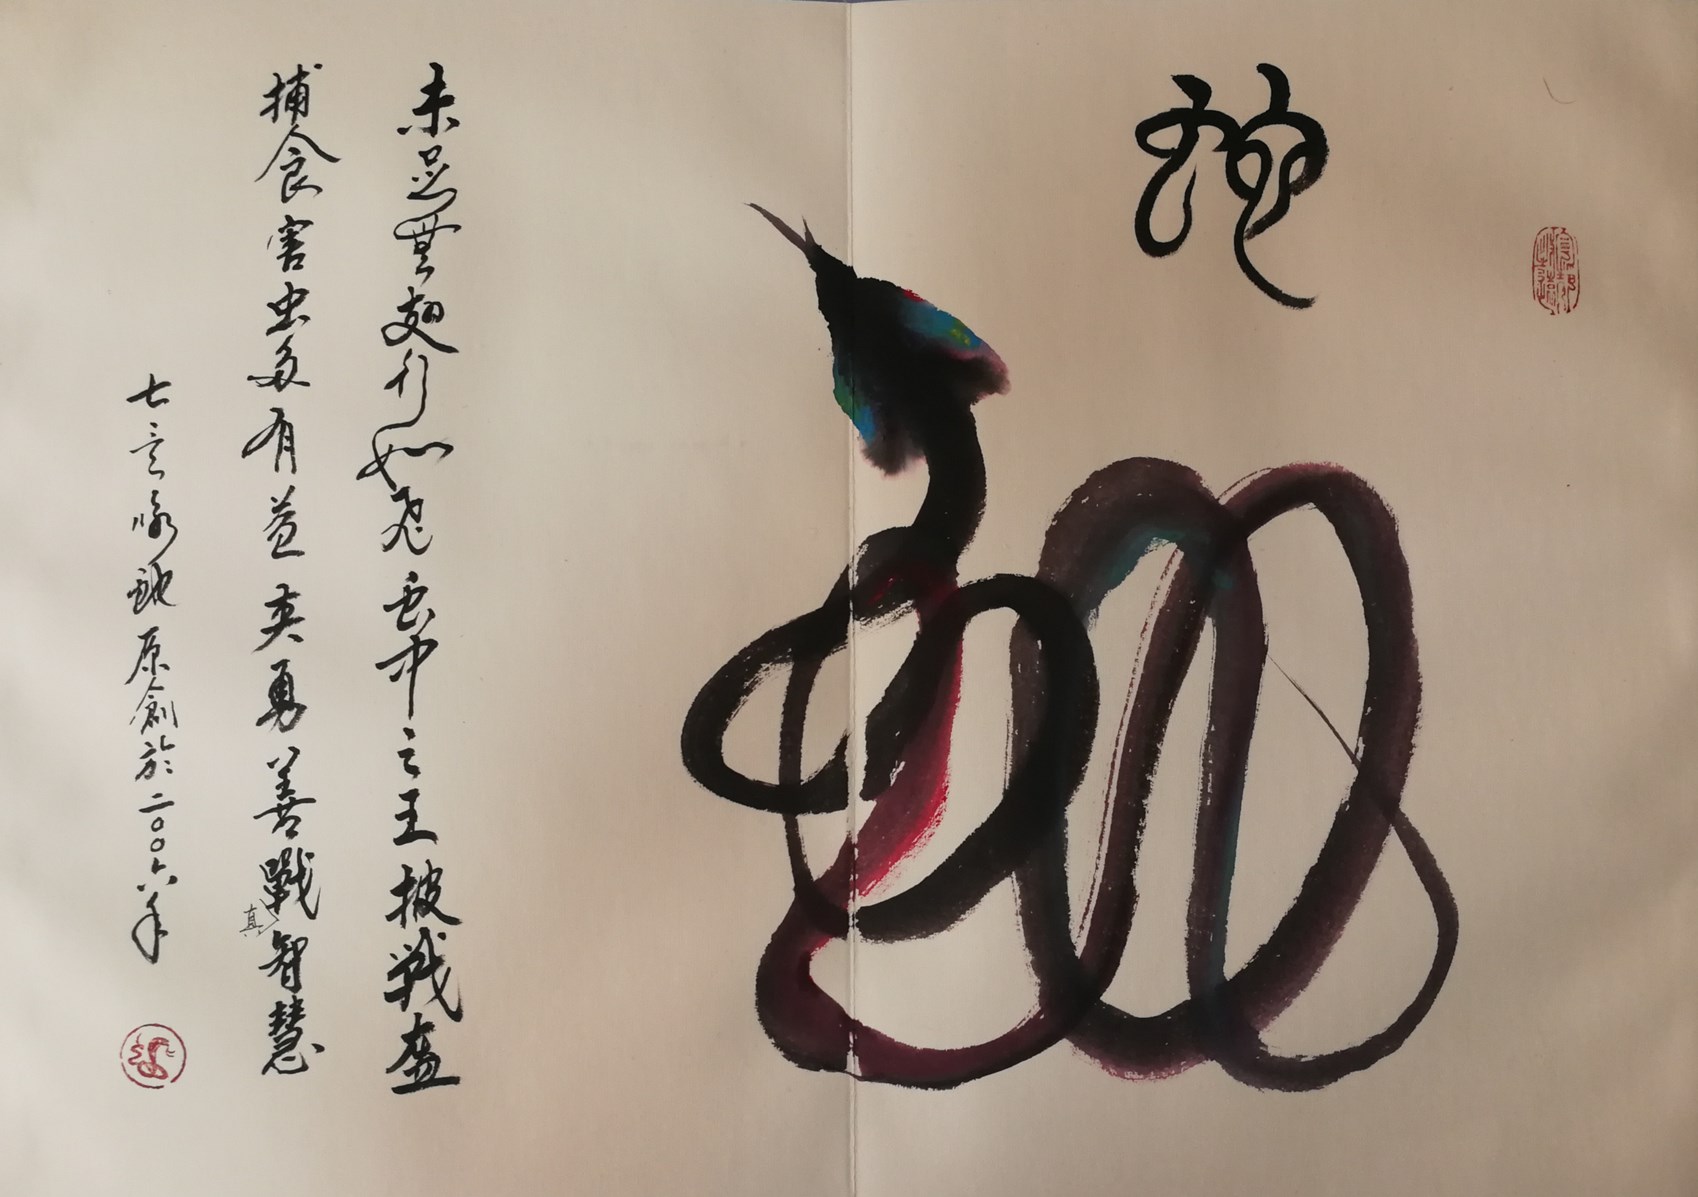 蛇
未足無翅行如飛虫中之王披戰盔
捕食害虫多有益英勇善戰真智慧
七言咏蛇原創於二〇〇六年